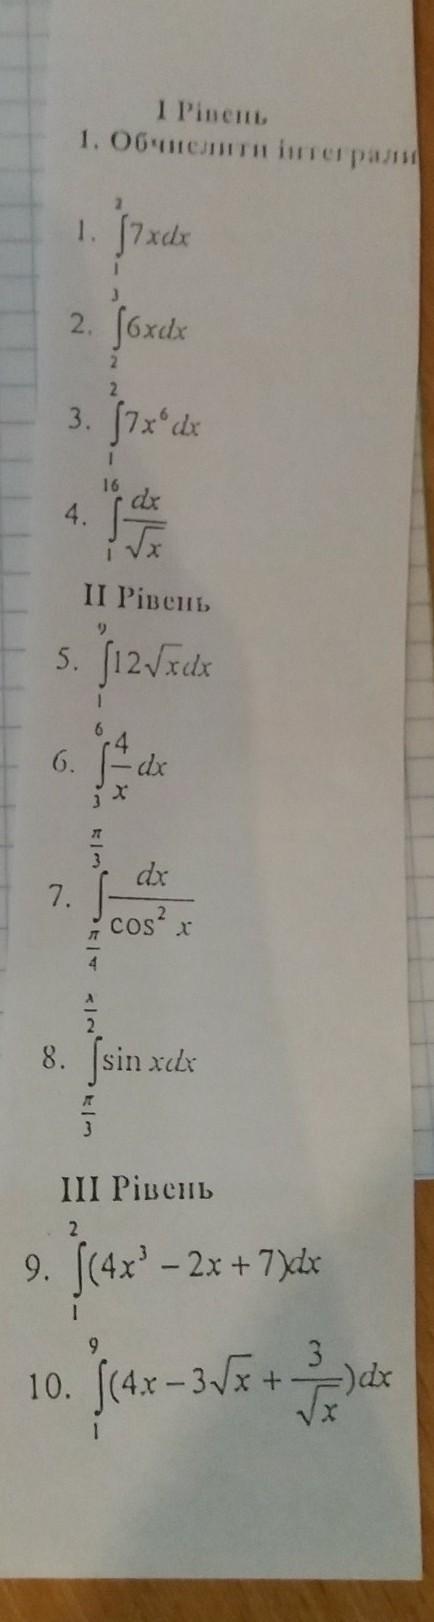 I Рівень
1. Обчислити інтеграли
1. ∫₁² 7xdx
2. ∫₂³ 6xdx
3. ∫₁² 7x⁶dx
4. ∫₁¹⁶ dx/√x
II Рівень
5. ∫₁⁹ 12√xdx
6. ∫₃⁶ 4/x dx
7. ∫_{π/4}^{π/3} dx/cos² x
8. ∫_{π/3}^{π/2} sin xdx
III Рівень
9. ∫₁² (4x³ − 2x + 7)dx
10. ∫₁⁹ (4x − 3√x + 3/√x)dx